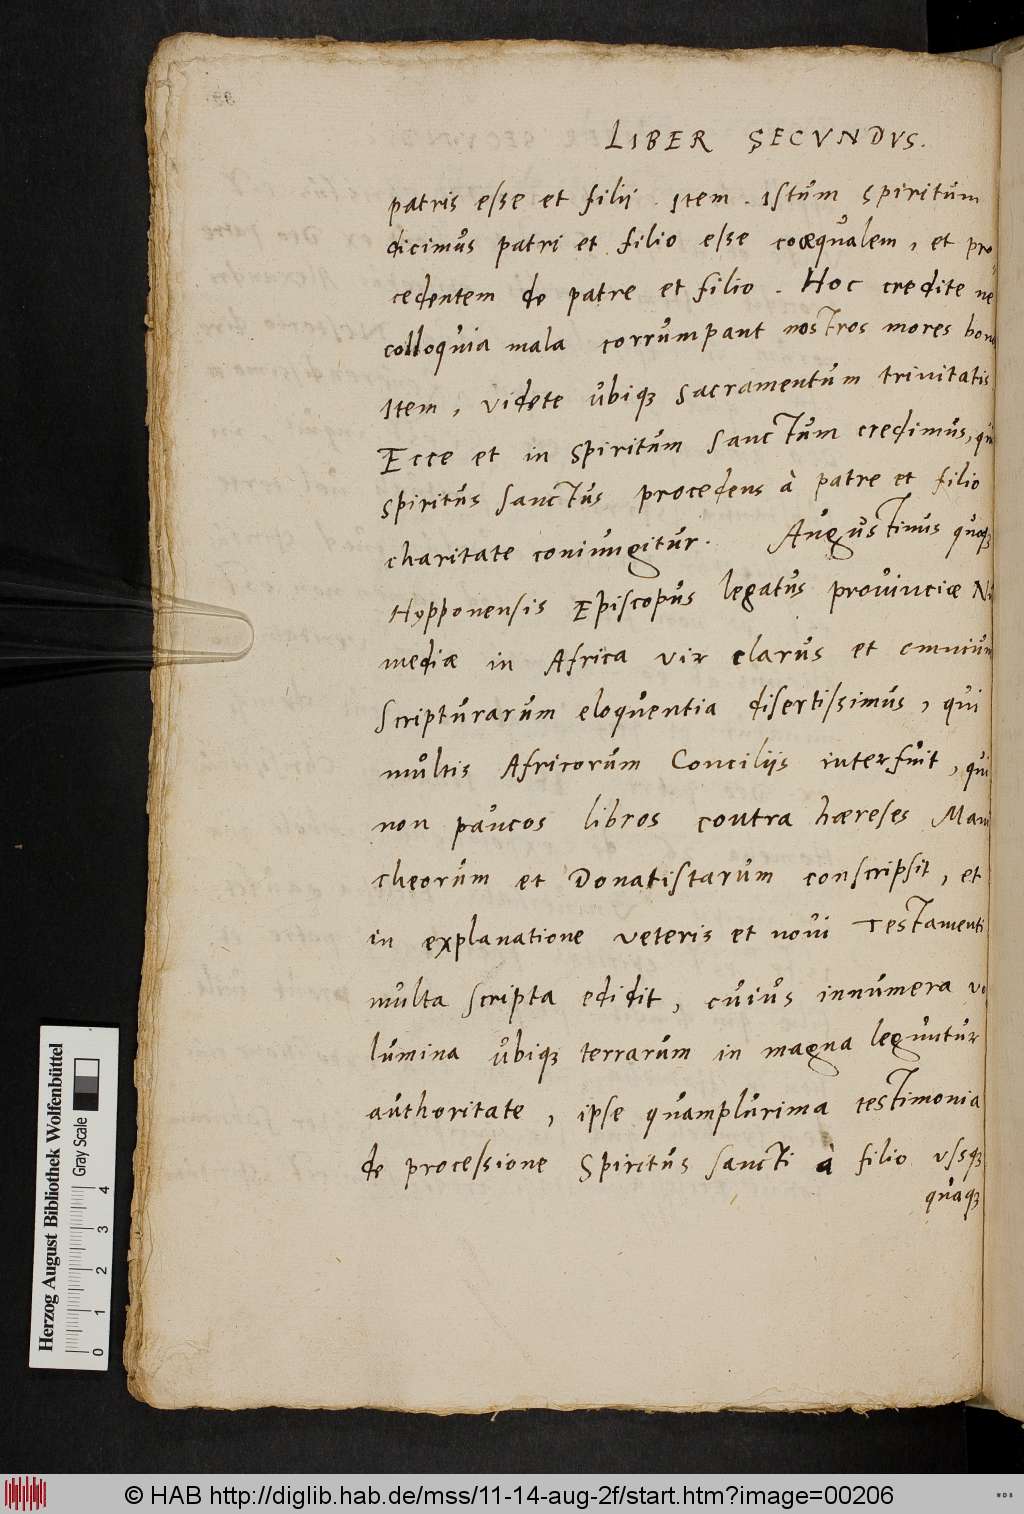 LIBER SECVNDVS.
patris esse et filij. Item. Istum spiritum
dicimus patri et filio esse coæqualem, et pro
cedentem de patre et filio. Hoc credite ne
colloquia mala corrumpant nostros mores bon
Item, videte ubiq; sacramentum trinitatis
Ecce et in spiritum sanctum credimus, qui
spiritus sanctus procedens à patre et filio
charitate coniungitur. Augustinus quoq;
Hypponensis Episcopus legatus provinciæ N
mediæ in Africa vir clarus et omnium
scripturarum eloquentia disertissimus, qui
multis Africorum Conciliis interfuit, qui
non paucos libros contra hæreses Mani
cheorum et Donatistarum conscripsit, et
in explanatione veteris et novi Testamenti
multa scripta edidit, cuius innumera vo
lumina ubiq; terrarum in magna leguntur
authoritate, ipse quamplurima testimonia
de processione Spiritus sancti à filio usq;
quaq;
Herzog August Bibliothek Wolfenbüttel
Gray Scale
0 1 2 3 4
© HAB http://diglib.hab.de/mss/11-14-aug-2f/start.htm?image=00206